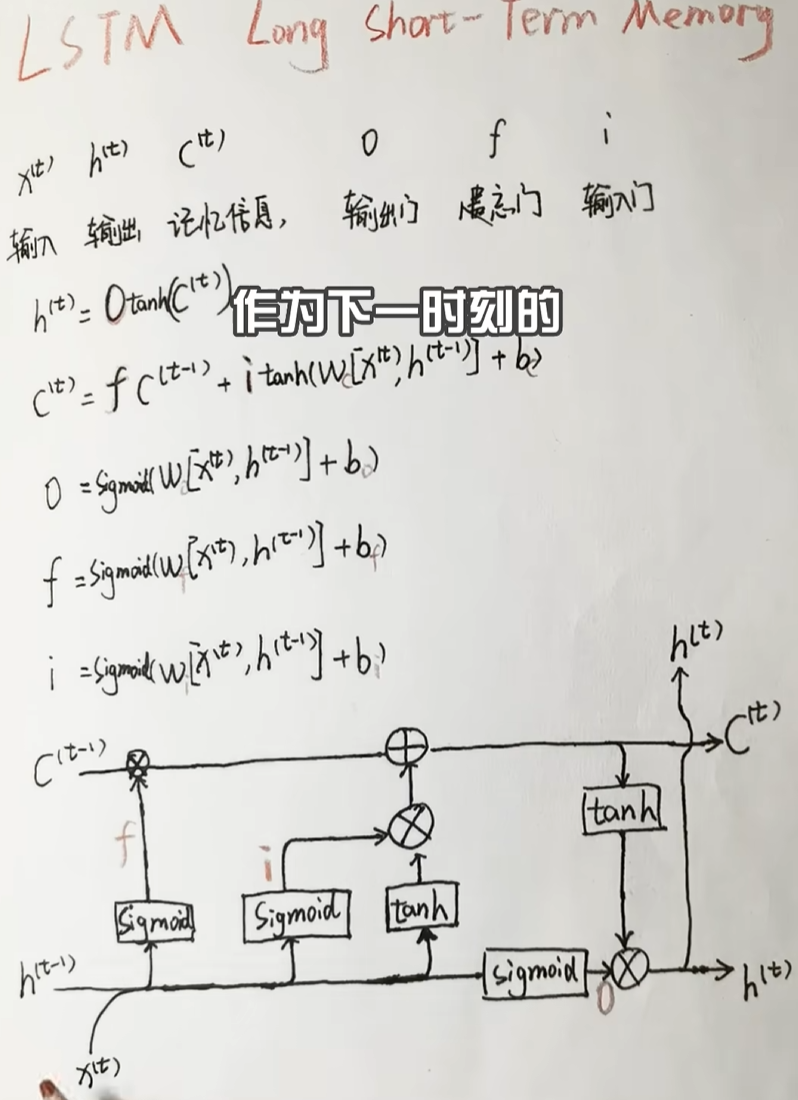 LSTM Long Short-Term Memory
x⁽ᵗ⁾ h⁽ᵗ⁾ C⁽ᵗ⁾ O f i
输入 输出 记忆信息, 输出门 遗忘门 输入门
h⁽ᵗ⁾ = O tanh(C⁽ᵗ⁾)
作为下一时刻的
C⁽ᵗ⁾ = f C⁽ᵗ⁻¹⁾ + i tanh(W_c[x⁽ᵗ⁾, h⁽ᵗ⁻¹⁾] + b_c)
O = Sigmoid(W_o[x⁽ᵗ⁾, h⁽ᵗ⁻¹⁾] + b_o)
f = Sigmoid(W_f[x⁽ᵗ⁾, h⁽ᵗ⁻¹⁾] + b_f)
i = Sigmoid(W_i[x⁽ᵗ⁾, h⁽ᵗ⁻¹⁾] + b_i)
h⁽ᵗ⁾
C⁽ᵗ⁻¹⁾ ⊗ ⊕ C⁽ᵗ⁾
tanh
f i ⊗
Sigmoid Sigmoid tanh
h⁽ᵗ⁻¹⁾ sigmoid O ⊗ h⁽ᵗ⁾
x⁽ᵗ⁾